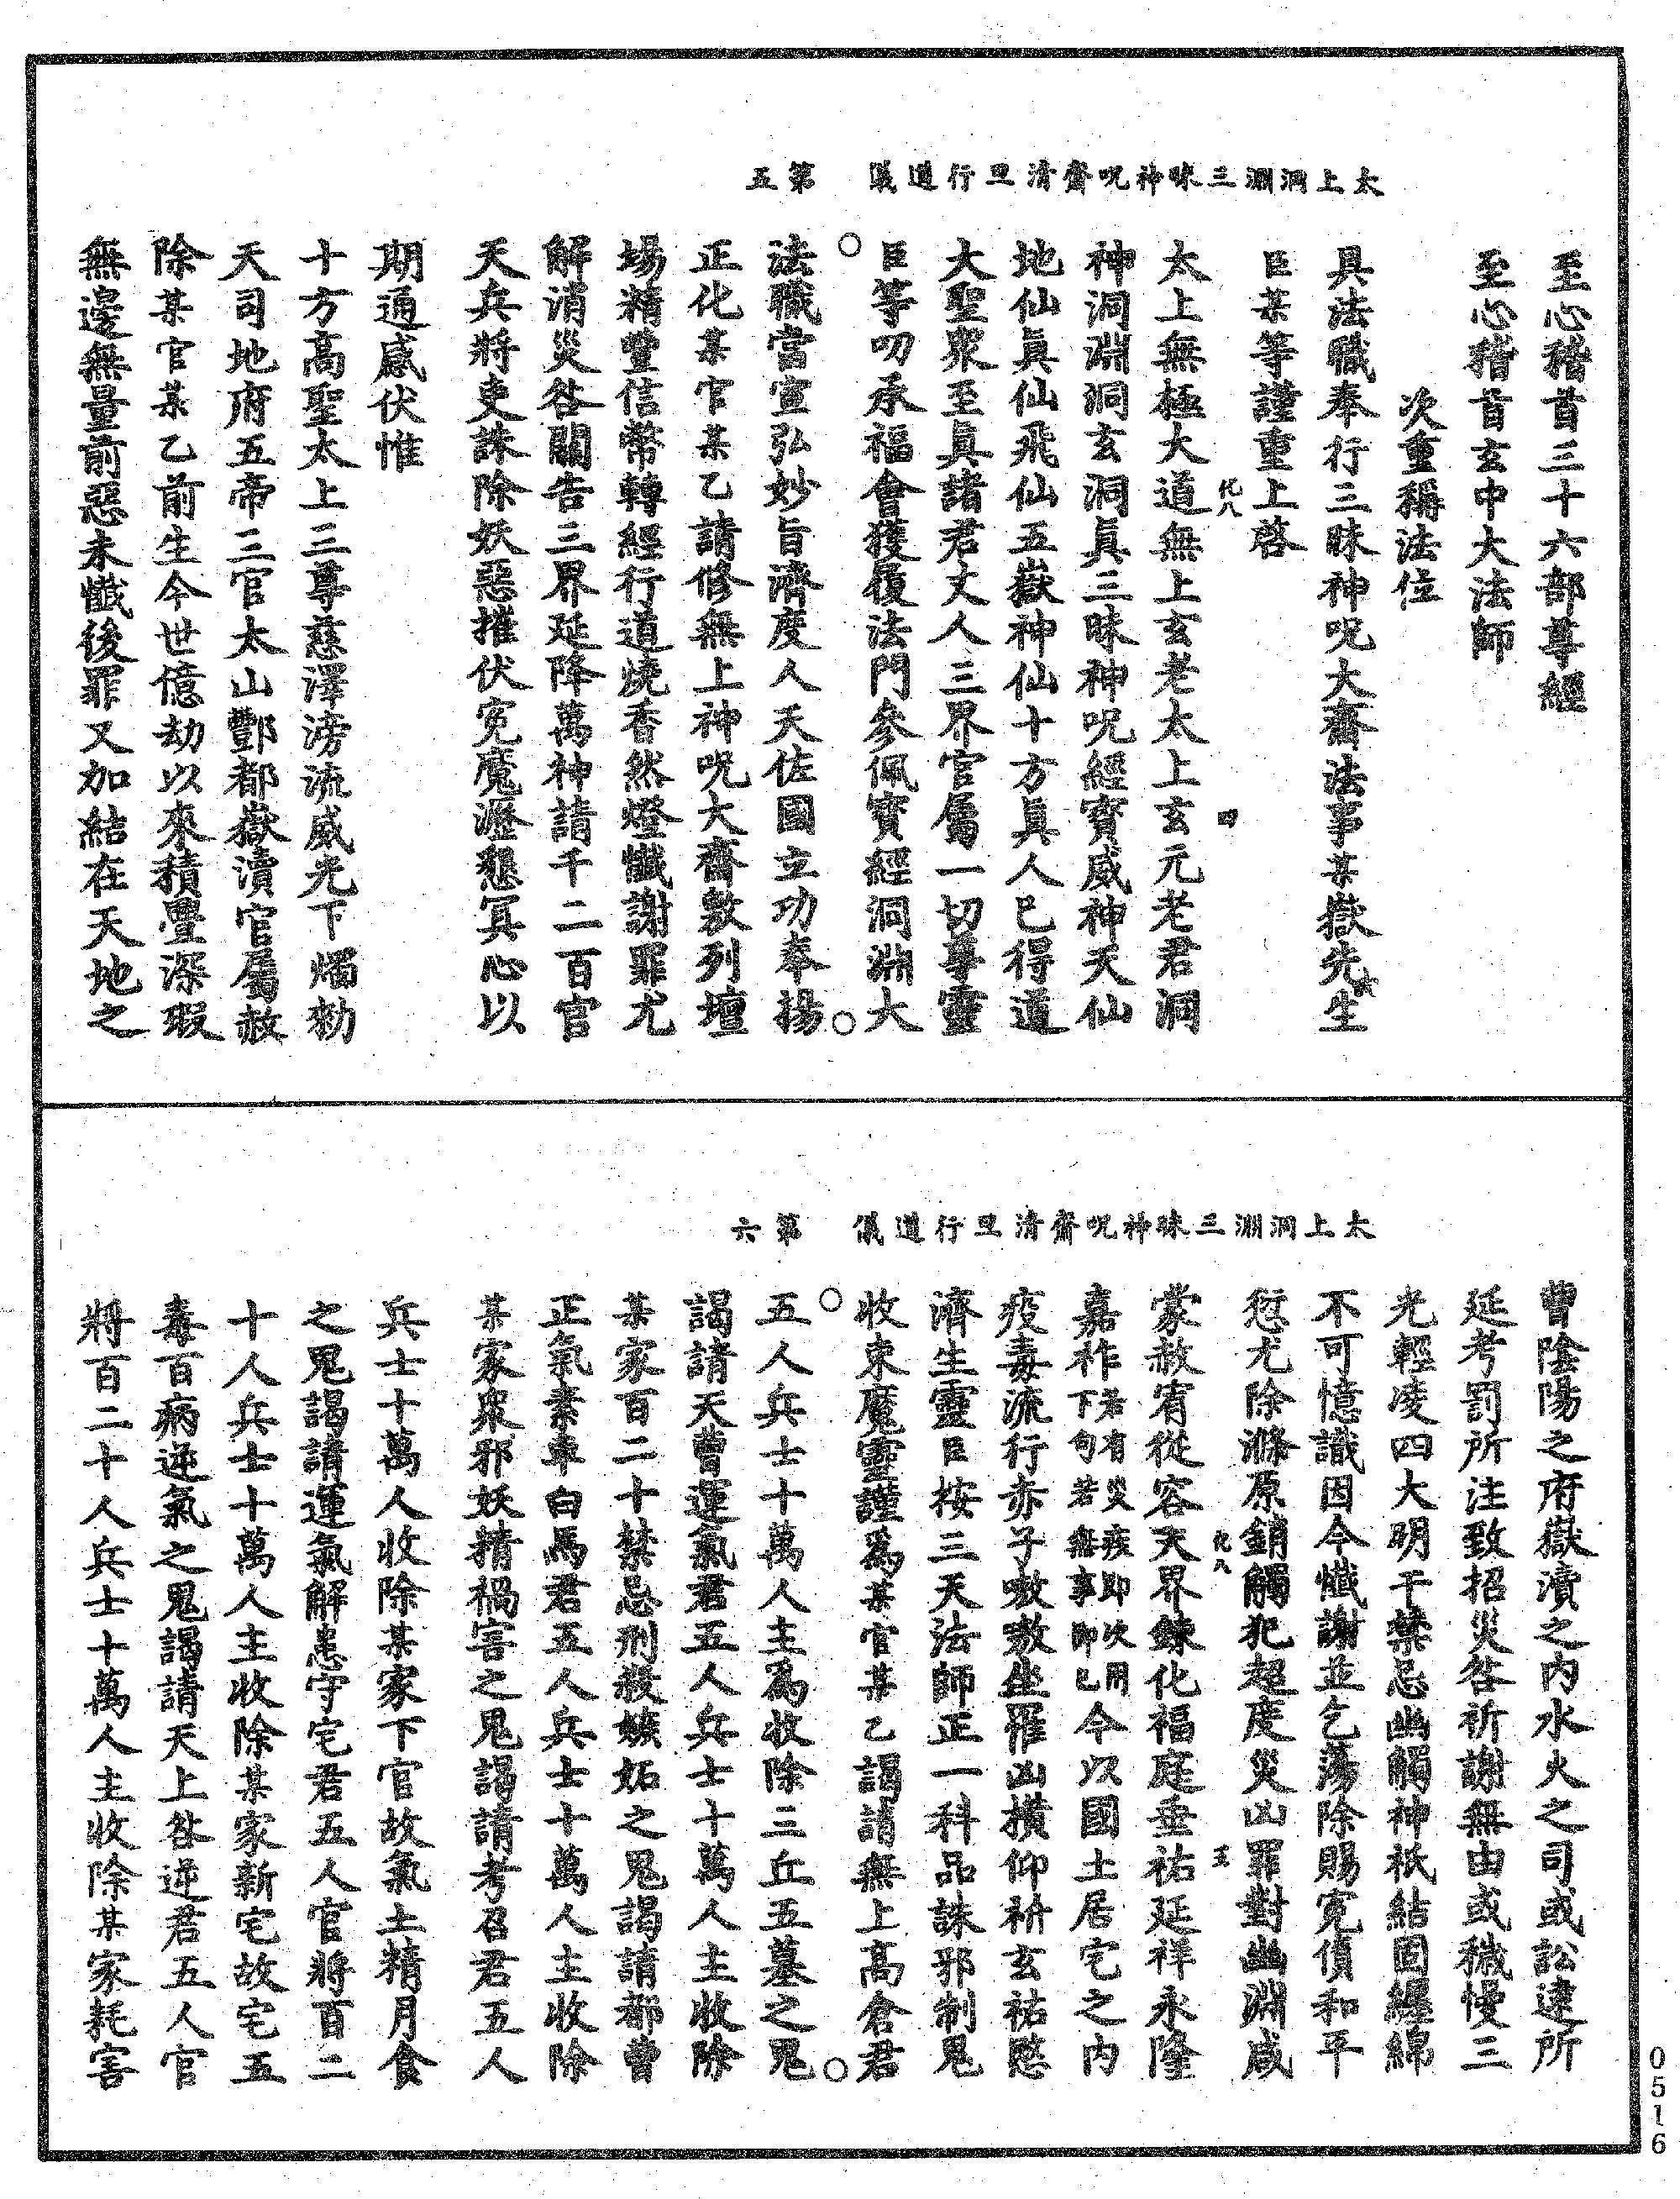 太上洞淵三昧神呪齋清旦行道儀　第五
至心稽首三十六部尊經
至心稽首玄中大法師
次重稱法位
具法職奉行三昧神呪大齋法事某嶽先生
臣某等謹重上啓
太上無極大道無上玄老太上玄元老君洞
神洞淵洞玄洞眞三昧神呪經寶威神天仙
地仙眞仙飛仙五嶽神仙十方眞人已得道
大聖衆至眞諸君丈人三界官屬一切尊靈
臣等叨承福會獲履法門參佩寶經洞淵大
法職當宣弘妙旨濟度人天佐國立功奉揚
正化某官某乙請修無上神呪大齋敷列壇
場精豐信幣轉經行道燒香然燈懺謝罪尤
解消災咎關告三界延降萬神請千二百官
天兵將吏誅除妖惡摧伏寃魔瀝懇冥心以
期通感伏惟
十方高聖太上三尊慈澤滂流威光下燭勑
天司地府五帝三官太山酆都嶽瀆官屬赦
除某官某乙前生今世億劫以來積釁深瑕
無邊無量前惡未懺後罪又加結在天地之
化八
四
太上洞淵三昧神呪齋清旦行道儀　第六
曹陰陽之府嶽瀆之内水火之司或訟逮所
延考罰所注致招災咎祈謝無由或穢慢三
光輕凌四大明干禁忌幽觸神祇結固纒綿
不可憶識因今懺謝並乞蕩除賜寃債和平
愆尤除滌原銷觸犯超度災凶罪對幽淵咸
蒙赦宥從容天界鍊化福庭垂祐延祥永隆
嘉祚若有災疾即次用下句若無事即已今以國土居宅之内
疫毒流行赤子嗷嗷坐罹凶橫仰祈玄祐愍
濟生靈臣按三天法師正一科品誅邪制鬼
收束魔靈謹爲某官某乙謁請無上高倉君
五人兵士十萬人主爲收除三丘五墓之鬼
謁請天曹運氣君五人兵士十萬人主收除
某家百二十禁忌刑殺嫉妬之鬼謁請都曹
正氣素車白馬君五人兵士十萬人主收除
某家衆邪妖精禍害之鬼謁請考召君五人
兵士十萬人收除某家下官故氣土精月食
之鬼謁請運氣解患守宅君五人官將百二
十人兵士十萬人主收除某家新宅故宅五
毒百病逆氣之鬼謁請天上咎逆君五人官
將百二十人兵士十萬人主收除某家耗害
化八
0516